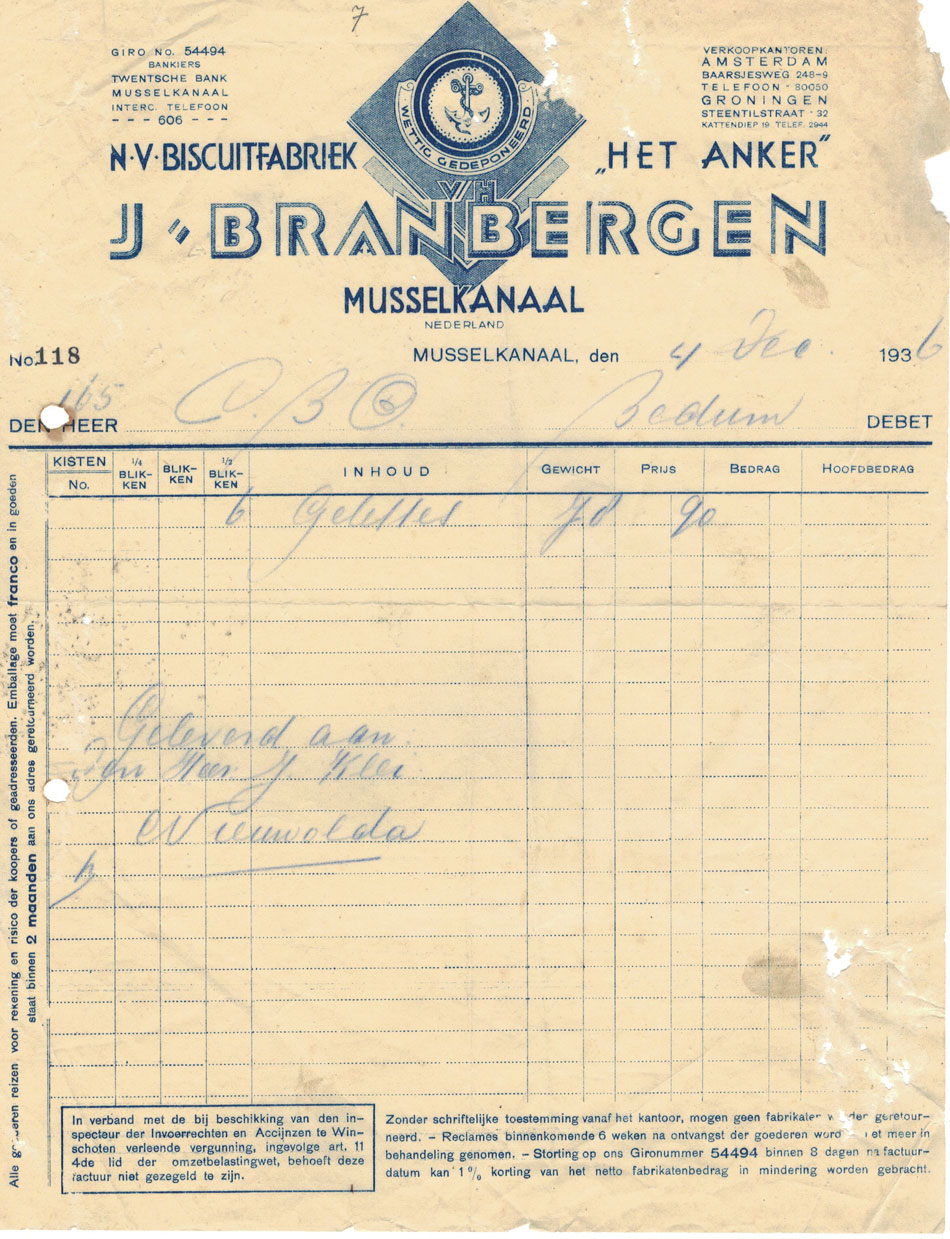 7
GIRO NO. 54494
BANKIERS
TWENTSCHE BANK
MUSSELKANAAL
INTERC. TELEFOON
- - - 606 - - -
WETTIG GEDEPONEERD
VERKOOPKANTOREN:
AMSTERDAM
BAARSJESWEG 248-9
TELEFOON - 80050
GRONINGEN
STEENTILSTRAAT - 32
KATTENDIEP 19 TELEF. 2944
N·V·BISCUITFABRIEK „HET ANKER"
VH
J. BRANBERGEN
MUSSELKANAAL
NEDERLAND
No. 118 MUSSELKANAAL, den 4 Dec. 1936
165
DEN HEER C. B Bedum DEBET
KISTEN No. 1/4 BLIK-KEN BLIK-KEN 1/2 BLIK-KEN INHOUD GEWICHT PRIJS BEDRAG HOOFDBEDRAG
6 90
Geleverd aan
Den Heer J. Klei
Nieuwolda
Alle goederen reizen voor rekening en risico der koopers of geadresseerden. Emballage moet franco en in goeden
staat binnen 2 maanden aan ons adres geretourneerd worden.
In verband met de bij beschikking van den in-
specteur der Invoerrechten en Accijnzen te Win-
schoten verleende vergunning, ingevolge art. 11
4de lid der omzetbelastingwet, behoeft deze
factuur niet gezegeld te zijn.
Zonder schriftelijke toestemming vanaf het kantoor, mogen geen fabrikaten worden geretour-
neerd. - Reclames binnenkomende 6 weken na ontvangst der goederen word et meer in
behandeling genomen. - Storting op ons Gironummer 54494 binnen 8 dagen na factuur-
datum kan 1% korting van het netto fabrikatenbedrag in mindering worden gebracht.